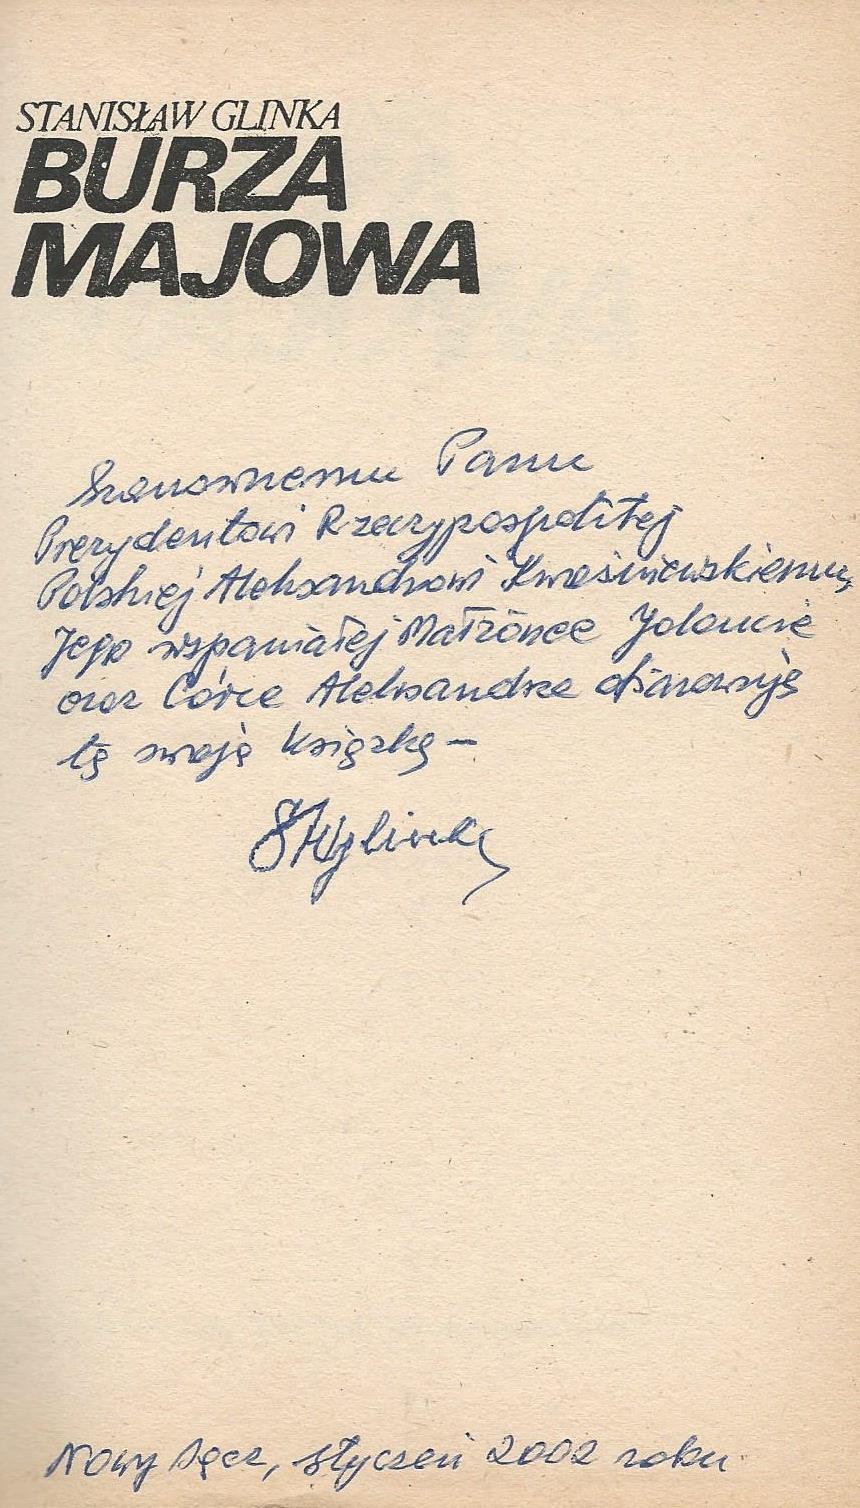 STANISŁAW GLINKA
BURZA
MAJOWA
Szanownemu Panu
Prezydentowi Rzeczypospolitej
Polskiej Aleksandrowi Kwaśniewskiemu,
Jego wspaniałej Małżonce Jolancie
oraz Córce Aleksandrze ofiarowuję
tę swoją książkę —
StGlinka
Nowy Sącz, styczeń 2002 roku